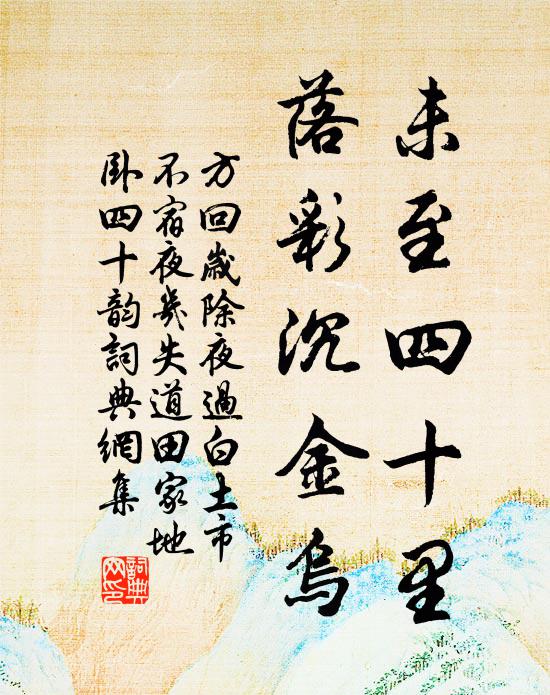 未至四十里
落彩沉金烏
方回歲除夜過白土市
不宿夜幾失道田家地
卧四十韵詞典網集
詞典网印